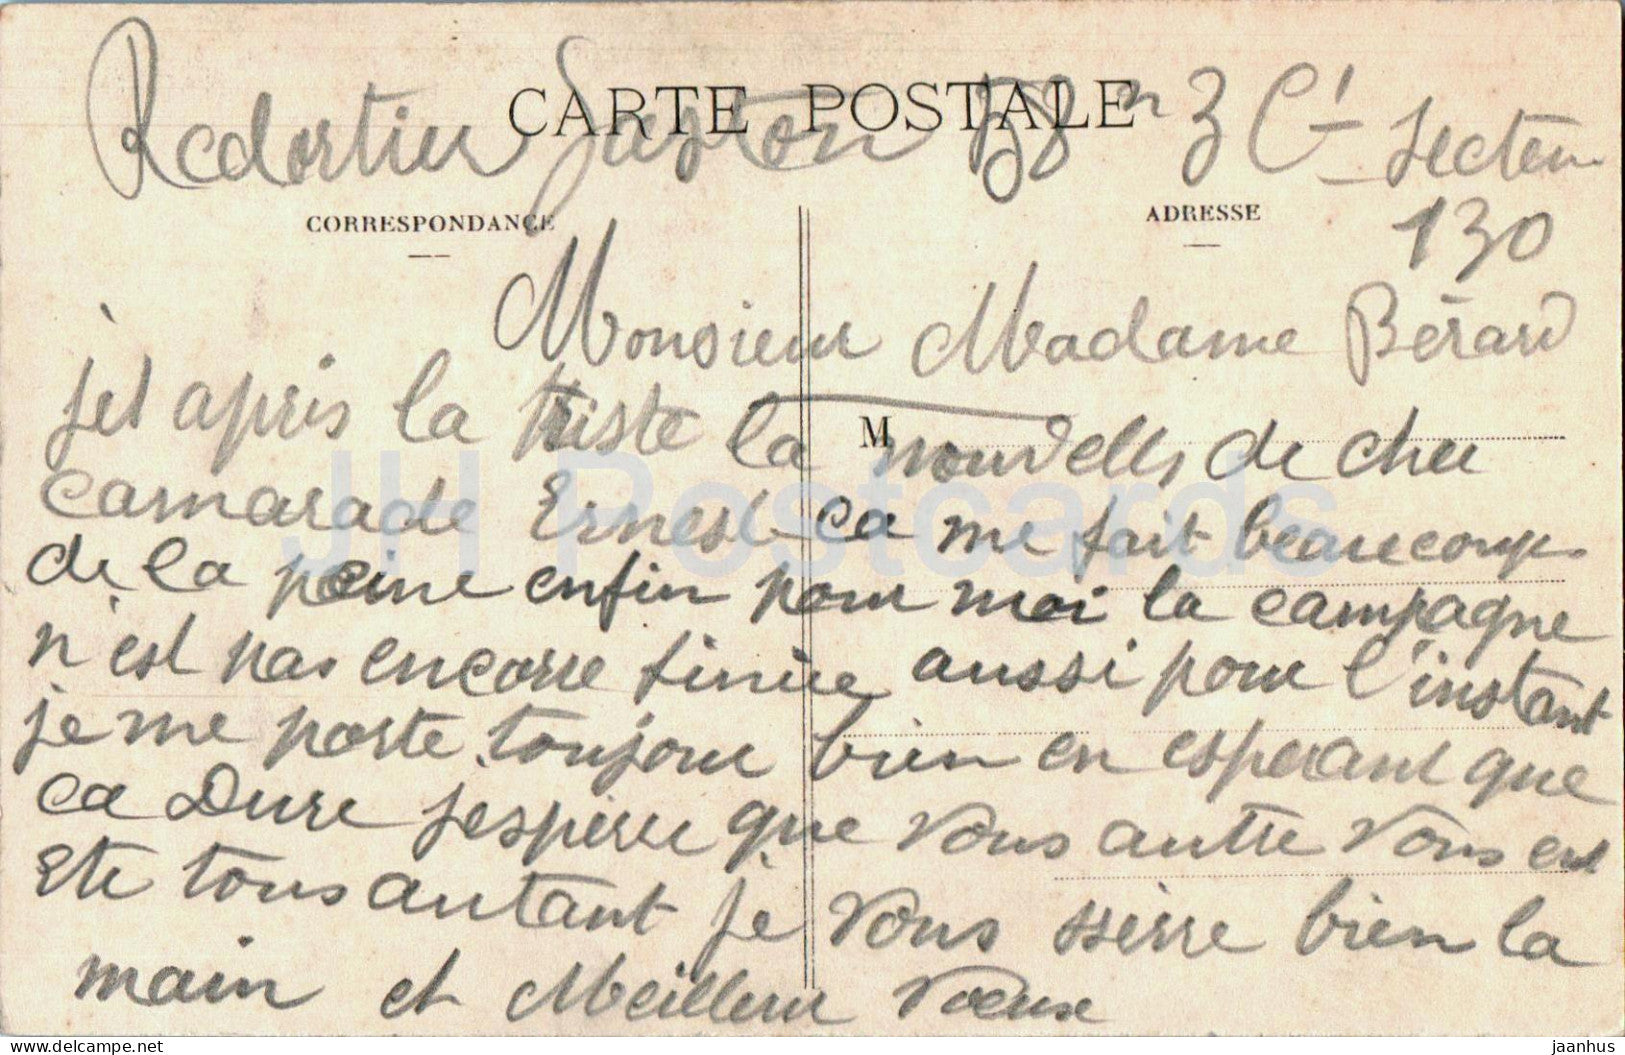 Redortier Gaston 158 n 3 Cⁱ Secteur
CARTE POSTALE
130
CORRESPONDANCE
ADRESSE
Monsieur Madame Bérard
jet apris la triste la nouvelles de cher
M
camarade Ernest ca me fait beaucoup
de la peine enfin pour moi la campagne
n'est pas encorre finiie aussi pour l'instant
je me porte toujour bien en esperant que
ca Dure j'esperer que vous autre vous est
ete tous autant je vous sserre bien la
main et Meilleur Voeux
JH Postcards
jaanhus
delcampe.net